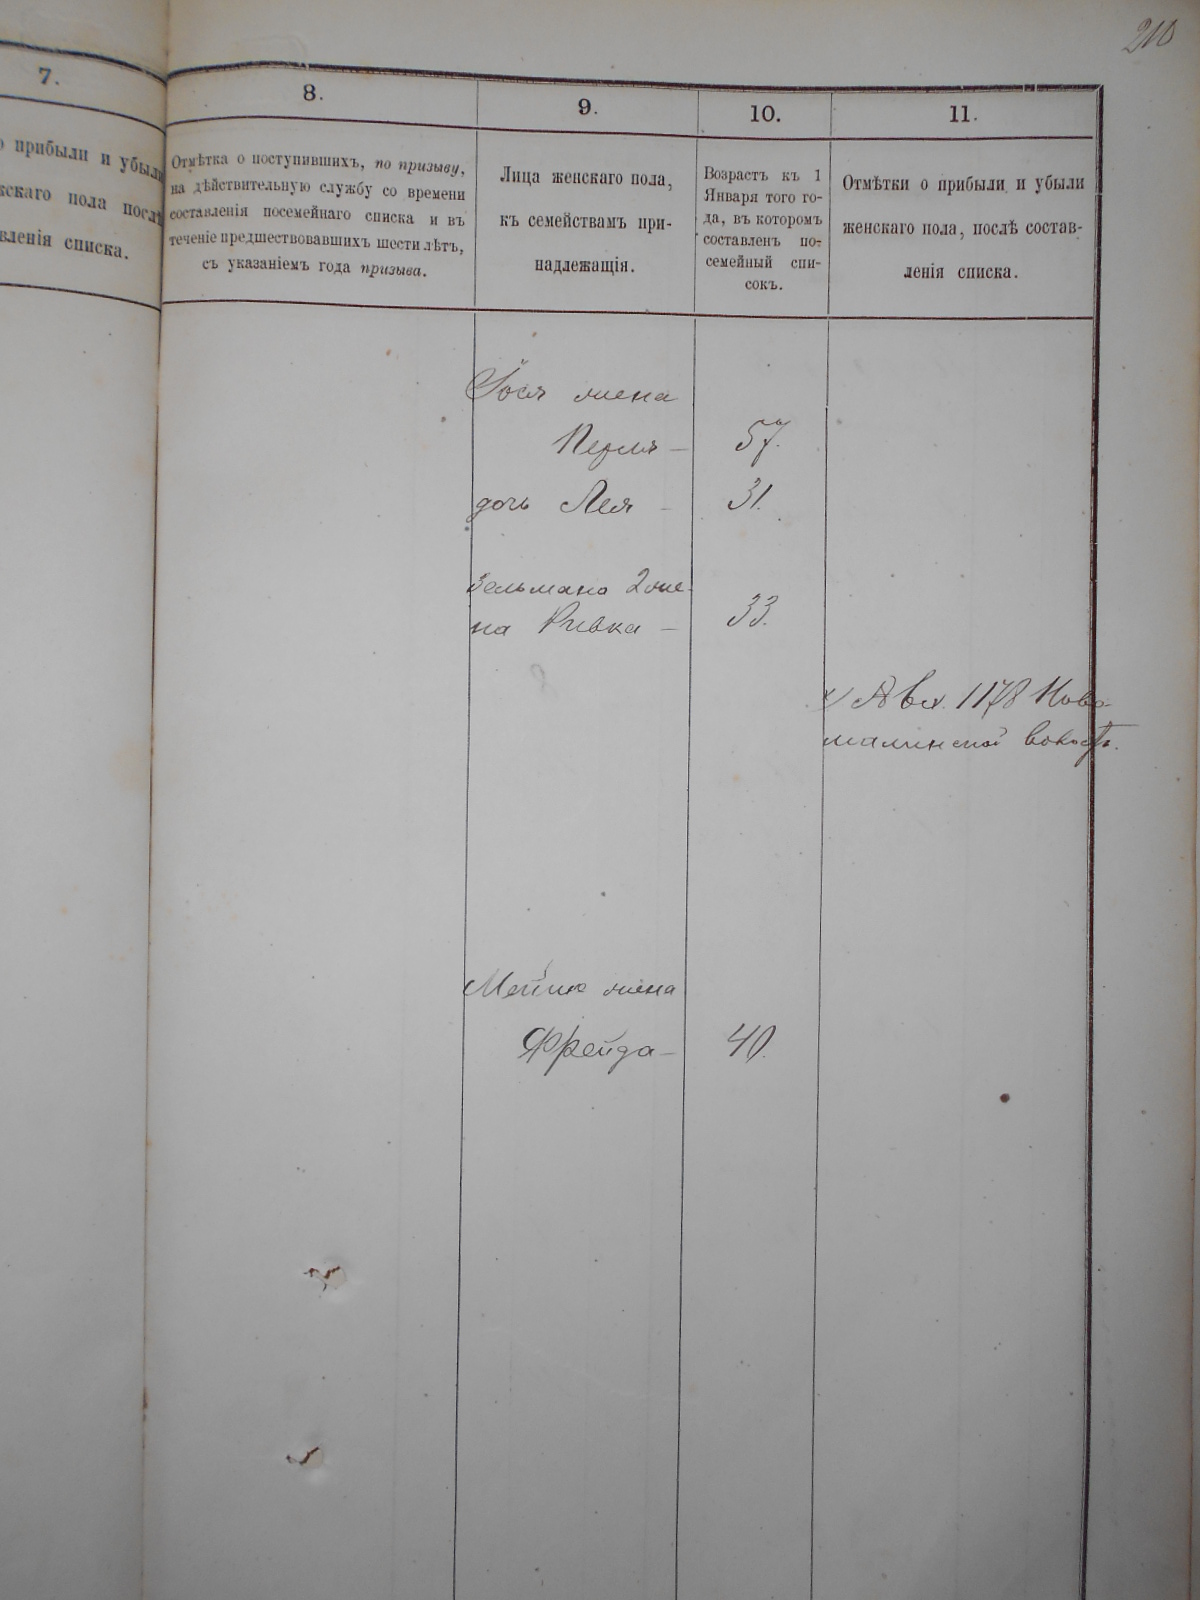 210
7.
прибыли и убыли
скаго пола послѣ
вленія списка.
8.
Отмѣтка о поступившихъ, по призыву,
на дѣйствительную службу со времени
составленія посемейнаго списка и въ
теченіе предшествовавшихъ шести лѣтъ,
съ указаніемъ года призыва.
9.
Лица женскаго пола,
къ семействамъ при-
надлежащія.
10.
Возрастъ къ 1
Января того го-
да, въ которомъ
составленъ по-
семейный спи-
сокъ.
11.
Отмѣтки о прибыли и убыли
женскаго пола, послѣ состав-
ленія списка.
жена
Перля — 57.
дочь Лея — 31.
Зельмана 2 же-
на Ривка — 33.
1178 Ново-
малинской
жена
Фрейда — 40.